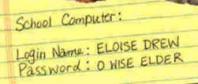 School Computer:
Login Name: ELOISE DREW
Password: O WISE ELDER